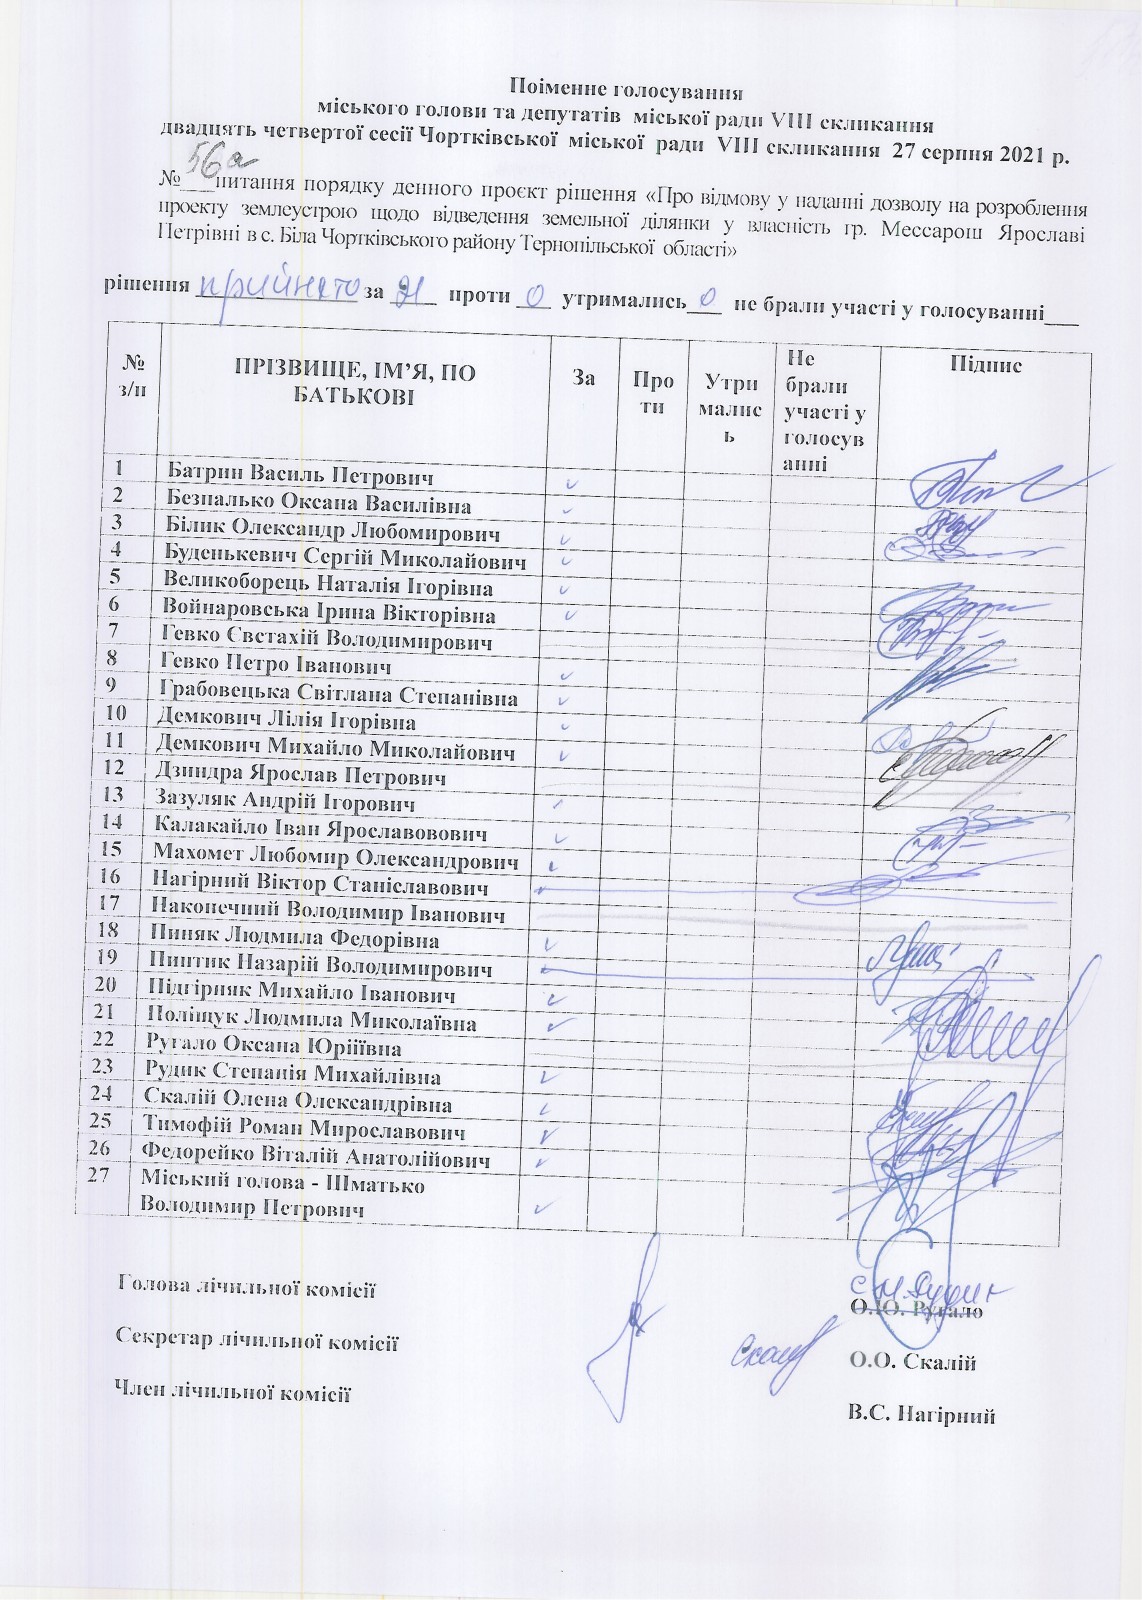 Поіменне голосування
міського голови та депутатів міської ради VIII скликання
двадцять четвертої сесії Чортківської міської ради VIII скликання 27 серпня 2021 р.
№ 56а питання порядку денного проєкт рішення «Про відмову у наданні дозволу на розроблення
проекту землеустрою щодо відведення земельної ділянки у власність гр. Мессарош Ярославі
Петрівні в с. Біла Чортківського району Тернопільської області»
рішення прийнято за 21 проти 0 утримались 0 не брали участі у голосуванні___
№ з/п ПРІЗВИЩЕ, ІМ’Я, ПО БАТЬКОВІ За Про ти Утри малис ь Не брали участі у голосув анні Підпис
1 Батрин Василь Петрович
2 Безпалько Оксана Василівна
3 Білик Олександр Любомирович
4 Буденькевич Сергій Миколайович
5 Великоборець Наталія Ігорівна
6 Войнаровська Ірина Вікторівна
7 Гевко Євстахій Володимирович
8 Гевко Петро Іванович
9 Грабовецька Світлана Степанівна
10 Демкович Лілія Ігорівна
11 Демкович Михайло Миколайович
12 Дзиндра Ярослав Петрович
13 Зазуляк Андрій Ігорович
14 Калакайло Іван Ярославовович
15 Махомет Любомир Олександрович
16 Нагірний Віктор Станіславович
17 Наконечний Володимир Іванович
18 Пиняк Людмила Федорівна
19 Пинтик Назарій Володимирович
20 Підгірняк Михайло Іванович
21 Поліщук Людмила Миколаївна
22 Ругало Оксана Юріїівна
23 Рудик Степанія Михайлівна
24 Скалій Олена Олександрівна
25 Тимофій Роман Мирославович
26 Федорейко Віталій Анатолійович
27 Міський голова - Шматько
Володимир Петрович
Голова лічильної комісії
С.М. Рудик
О.Ю. Ругало
Секретар лічильної комісії
О.О. Скалій
Член лічильної комісії
В.С. Нагірний